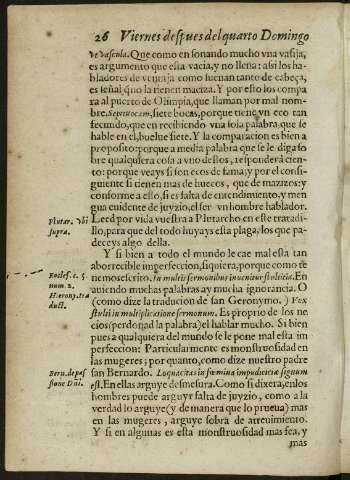 26 Viernes despues del quarto Domingo
ve vascula. Que como en sonando mucho vna vasija,
es argumento que esta vacia, y no llena: assi los ha-
bladores de ventaja como suenan tanto de cabeça,
es señal, que la tienen maciza. Y por esso los compa
ra al puerto de Olimpia, que llaman por mal nom-
bre, Septivocem, siete bocas, porque tiene vn eco tan
fecundo, que en recibiendo vna sola palabra, que se
hable en el, buelue siete. Y la comparacion es bien a
proposito: porque a media palabra que se le diga so
bre qualquiera cosa a vno destos, respondera cien-
to: porque veays si son ecos de fama; y por el consi-
guiente si tienen mas de huecos, que de mazizos: y
conforme a esso, si es falta de entendimiento, y men
gua euidente de juyzio, el ser vn hombre hablador.
Plutar. vbi
supra.
Leed por vida vuestra a Plutarcho en este tratadi-
llo, para que del todo huyays esta plaga, los que pa-
deceys algo della.
Y si bien a todo el mundo le cae mal esta tan
aborrecible imperfeccion, siquiera, porque como se
Eccles. c. 5
num. 2.
Hierony. tra
duct.
nemos escrito, In multis sermonibus inuenitur stultitia. En
auiendo muchas palabras ay mucha ignorancia. O
(como dize la traducion de san Geronymo.) Vox
stulti in multiplicatione sermonum. Es proprio de los ne
cios (perdonad la palabra) el hablar mucho. Si bien
pues a qualquiera del mundo se le pone mal esta im
perfeccion: Particularmente es monstruosidad en
las mugeres; por quanto, como dize nuestro padre
Bern. de pas
sione Dñi.
san Bernardo. Loquacitas in fœmina impudentiæ signum
est. En ellas arguye desmesura. Como si dixera, en los
hombres puede arguyr falta de juyzio, como a la
verdad lo arguye (y de manera que lo prueua) mas
en las mugeres, arguye sobra de atreuimiento.
Y si en algunas es esta monstruosidad mas fea, y
mas